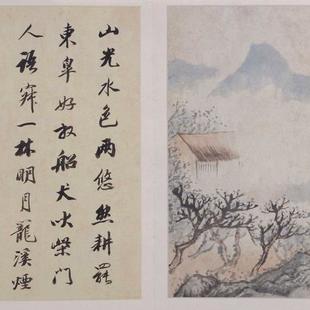 山光水色两悠然耕罷
東皐好放船犬吠柴門
人語寂一林明月籠溪煙